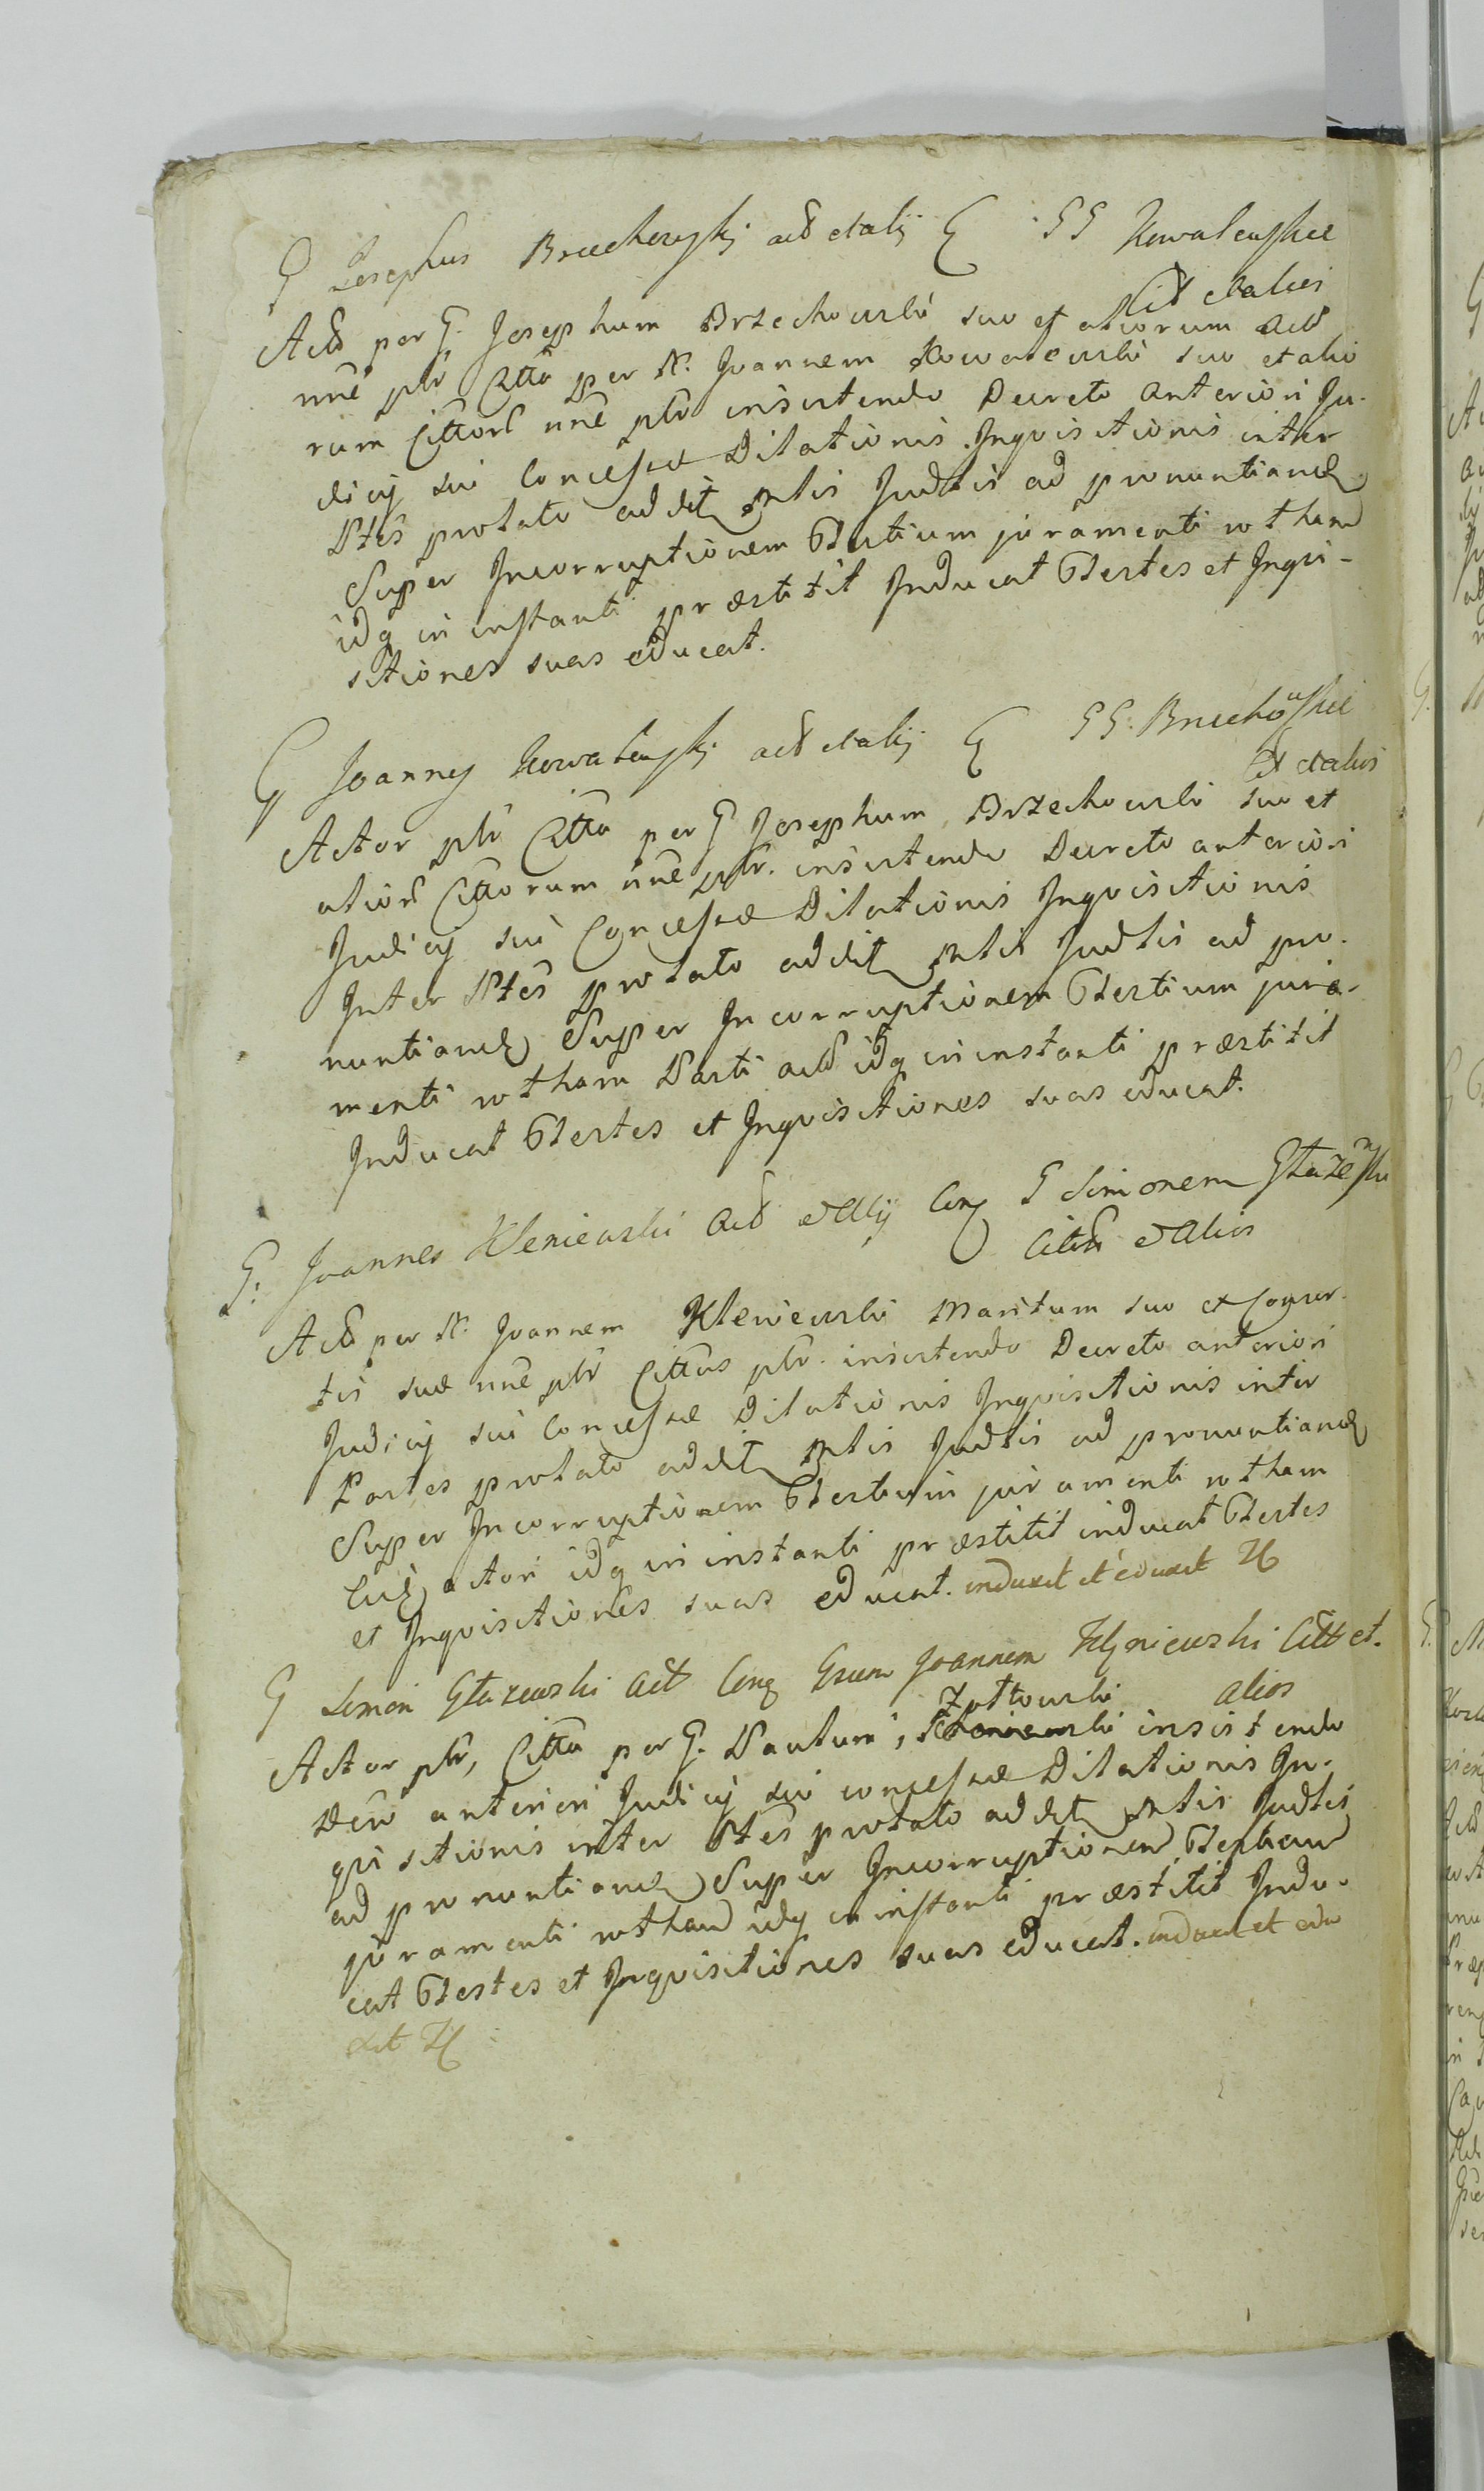 G Josephus Brzechowski act et alij C GG Kowalewskie
Cit et alios
Act per G. Josephum Brzechowski suo et aliorum act
nne ptr Citta per N. Joannem Kowalewski suo et alio
rum Cittor nne ptr insistendo Decreto anteriori Ju-
dicij sui Concessæ Dilationis Inqvisitionis inter
Ptes prolato addit Mtis Judtis ad pronuntiand
Super Incorruptionem Testium juramenti rotham
idq in instanti præstitit Inducat Testes et Inqvi-
sitiones suas educat.
G Joannes Kowalewski act et alij C GG. Brzechowskie
Cit et alios
Actor ptr Citta per G Josephum Brzechowski suo et
alior Cittorum nne ptr. insistendo Decreto anteriori
Judicij sui Concessæ Dilationis Inqvisitionis
Inter Ptes prolato addit Mtis Judtis ad pro-
nuntiand Super Incorruptionem Testium jura-
menti rotham Parti act idq in instanti præstitit
Inducat Testes et Inqvisitiones suas educat.
G. Joannes Kleniewski Act et Alij Con G Simonem Głażewski
Citt et Alios
Act per N. Joannem Kleniewski Maritum suo et Consor-
tis suæ nne ptr Cittus ptr. insistendo Decreto anteriori
Judicij sui Concessæ Dilationis Inqvisitionis inter
Partes prolato addit Mtis Judtis ad pronuntiand
Super Incorruptionem Testium juramenti rotham
Cui actori idq in instanti præstitit inducat Testes
et Inqvisitiones suas educat. induxit et eduxit
G Simon Głażewski Act Con Gsum Joannem Klyniewski Citt et.
alios
Actor ptr, Citta per G. Paulum Żółtowski insistendo
Dcto anteriori Judicij sui concessæ Dilationis In-
qvisitionis inter Ptes prolato addit Mtis Judtis
ad pronuntiand Super Incorruptionem Testium
juramenti rotham idq in instanti præstitit Indu-
cat Testes et Inqvisitiones suas educat. induxit et edu
xit